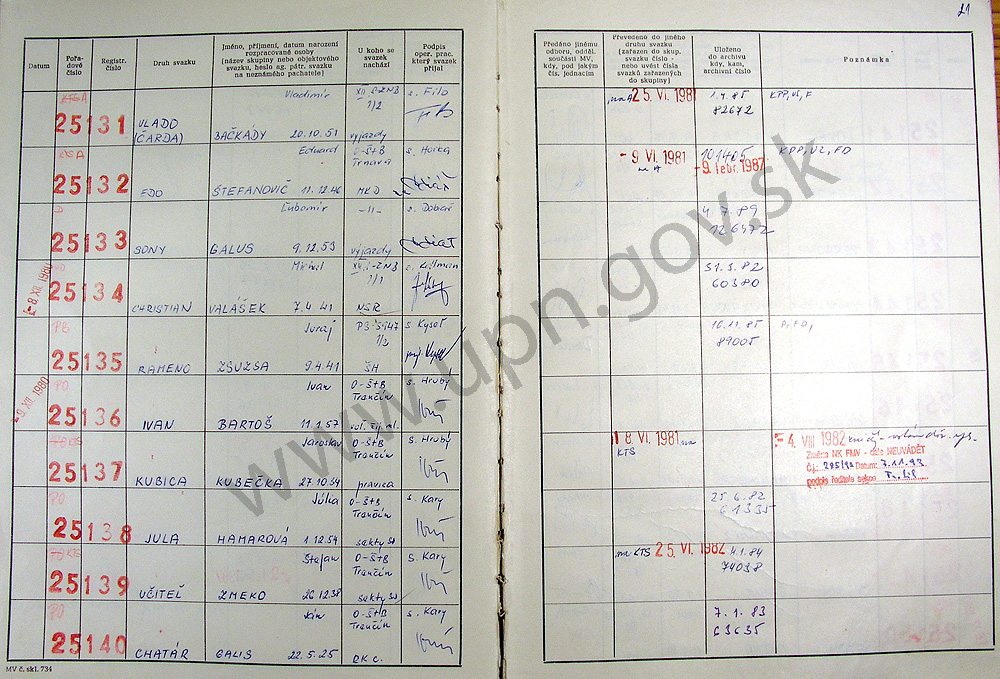 21
Datum
Pořa-
dové
číslo
Registr.
číslo
Druh svazku
Jméno, příjmení, datum narození
rozpracované osoby
[název skupiny nebo objektového
svazku, heslo ag. pátr. svazku
na neznámého pachatele]
U koho se
svazek
nachází
Podpis
oper. prac.
který svazek
přijal
Předáno jinému
odboru, odděl.
součásti MV,
kdy, pod jakým
čís. jednacím
Převedeno do jiného
druhu svazku
(zařazen do skup.
svazku číslo -
nebo uvést čísla
svazků zařazených
do skupiny)
Uloženo
do archivu
kdy, kam,
archivní číslo
Poznámka
25131
VLADO
(ČARDA)
Vladimír
BAČKÁDY 20.10.51
XII. S-ZNB
1/2
výjazdy
s. Filo
na A 25. VI. 1981
1.4.85
82672
KPP, VL, F
25132
EDO
Eduard
ŠTEFANOVIČ 11.12.46
O-ŠtB
Trnava
MKD
s. Horka
- 9. VI. 1981
na A
101405
- 9. febr. 1987
KPP, ÚZ, FD
25133
SONY
Ľubomír
GALUS 9.12.53
-11-
výjazdy
s. Dobiaš
4.7.89
126472
- 8. XII. 1980
25134
CHRISTIAN
Michal
VALÁŠEK 7.4.41
1/1
NSR
31.3.82
60380
PB
25135
RAMENO
Juraj
ZSUZSA 9.4.41
ŠH
s. Kysel
10.11.85
89005
- 9. XII. 1980
PO
25136
IVAN
Ivan
BARTOŠ 11.1.57
O-ŠtB
Trenčín
s. Hrubý
25137
KUBICA
Jaroslav
KUBEČKA 27.10.54
O-ŠtB
Trenčín
pravica
s. Hrubý
18. VI. 1981 na
KTS
- 4. VIII 1982
Změna NK FMV - dále NEUVÁDĚT
Č.j.: 295/92 Datum: 7.11.92
podpis ředitele sekce
PO
25138
JULA
Júlia
HAMAROVÁ 1.12.54
O-ŠtB
Trenčín
sekty SJ
s. Kary
25.6.82
61335
KTS
25139
UČITEĽ
Štefan
ZMEKO 26.12.38
O-ŠtB
Trenčín
sekty SJ
s. Kary
na KTS 25. VI. 1982
4.1.84
74038
PO
25140
CHATÁR
Ján
GALIS 22.5.25
O-ŠtB
Trenčín
RKC.
s. Kary
7.1.83
63635
MV č. skl. 734
www.upn.gov.sk